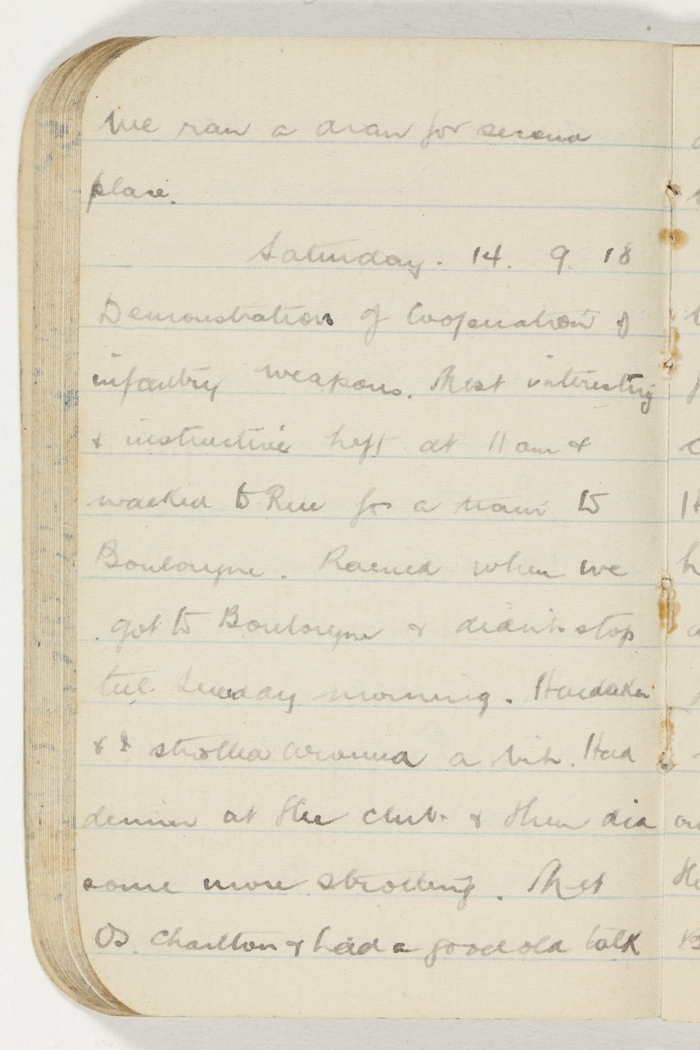 We ran a dran for second
place.
Saturday. 14. 9. 18
Demonstration of Cooperation of
infantry weapons. Most interesting
& instructive Left at 11 am &
walked to Rue for a train to
Boulougne. Rained when we
got to Boulougne & didn't stop
till Sunday morning. Hardaker
& I strolled around a bit. Had
dinner at the club & then did
some more strolling. Met
Os Charlton & had a good old talk